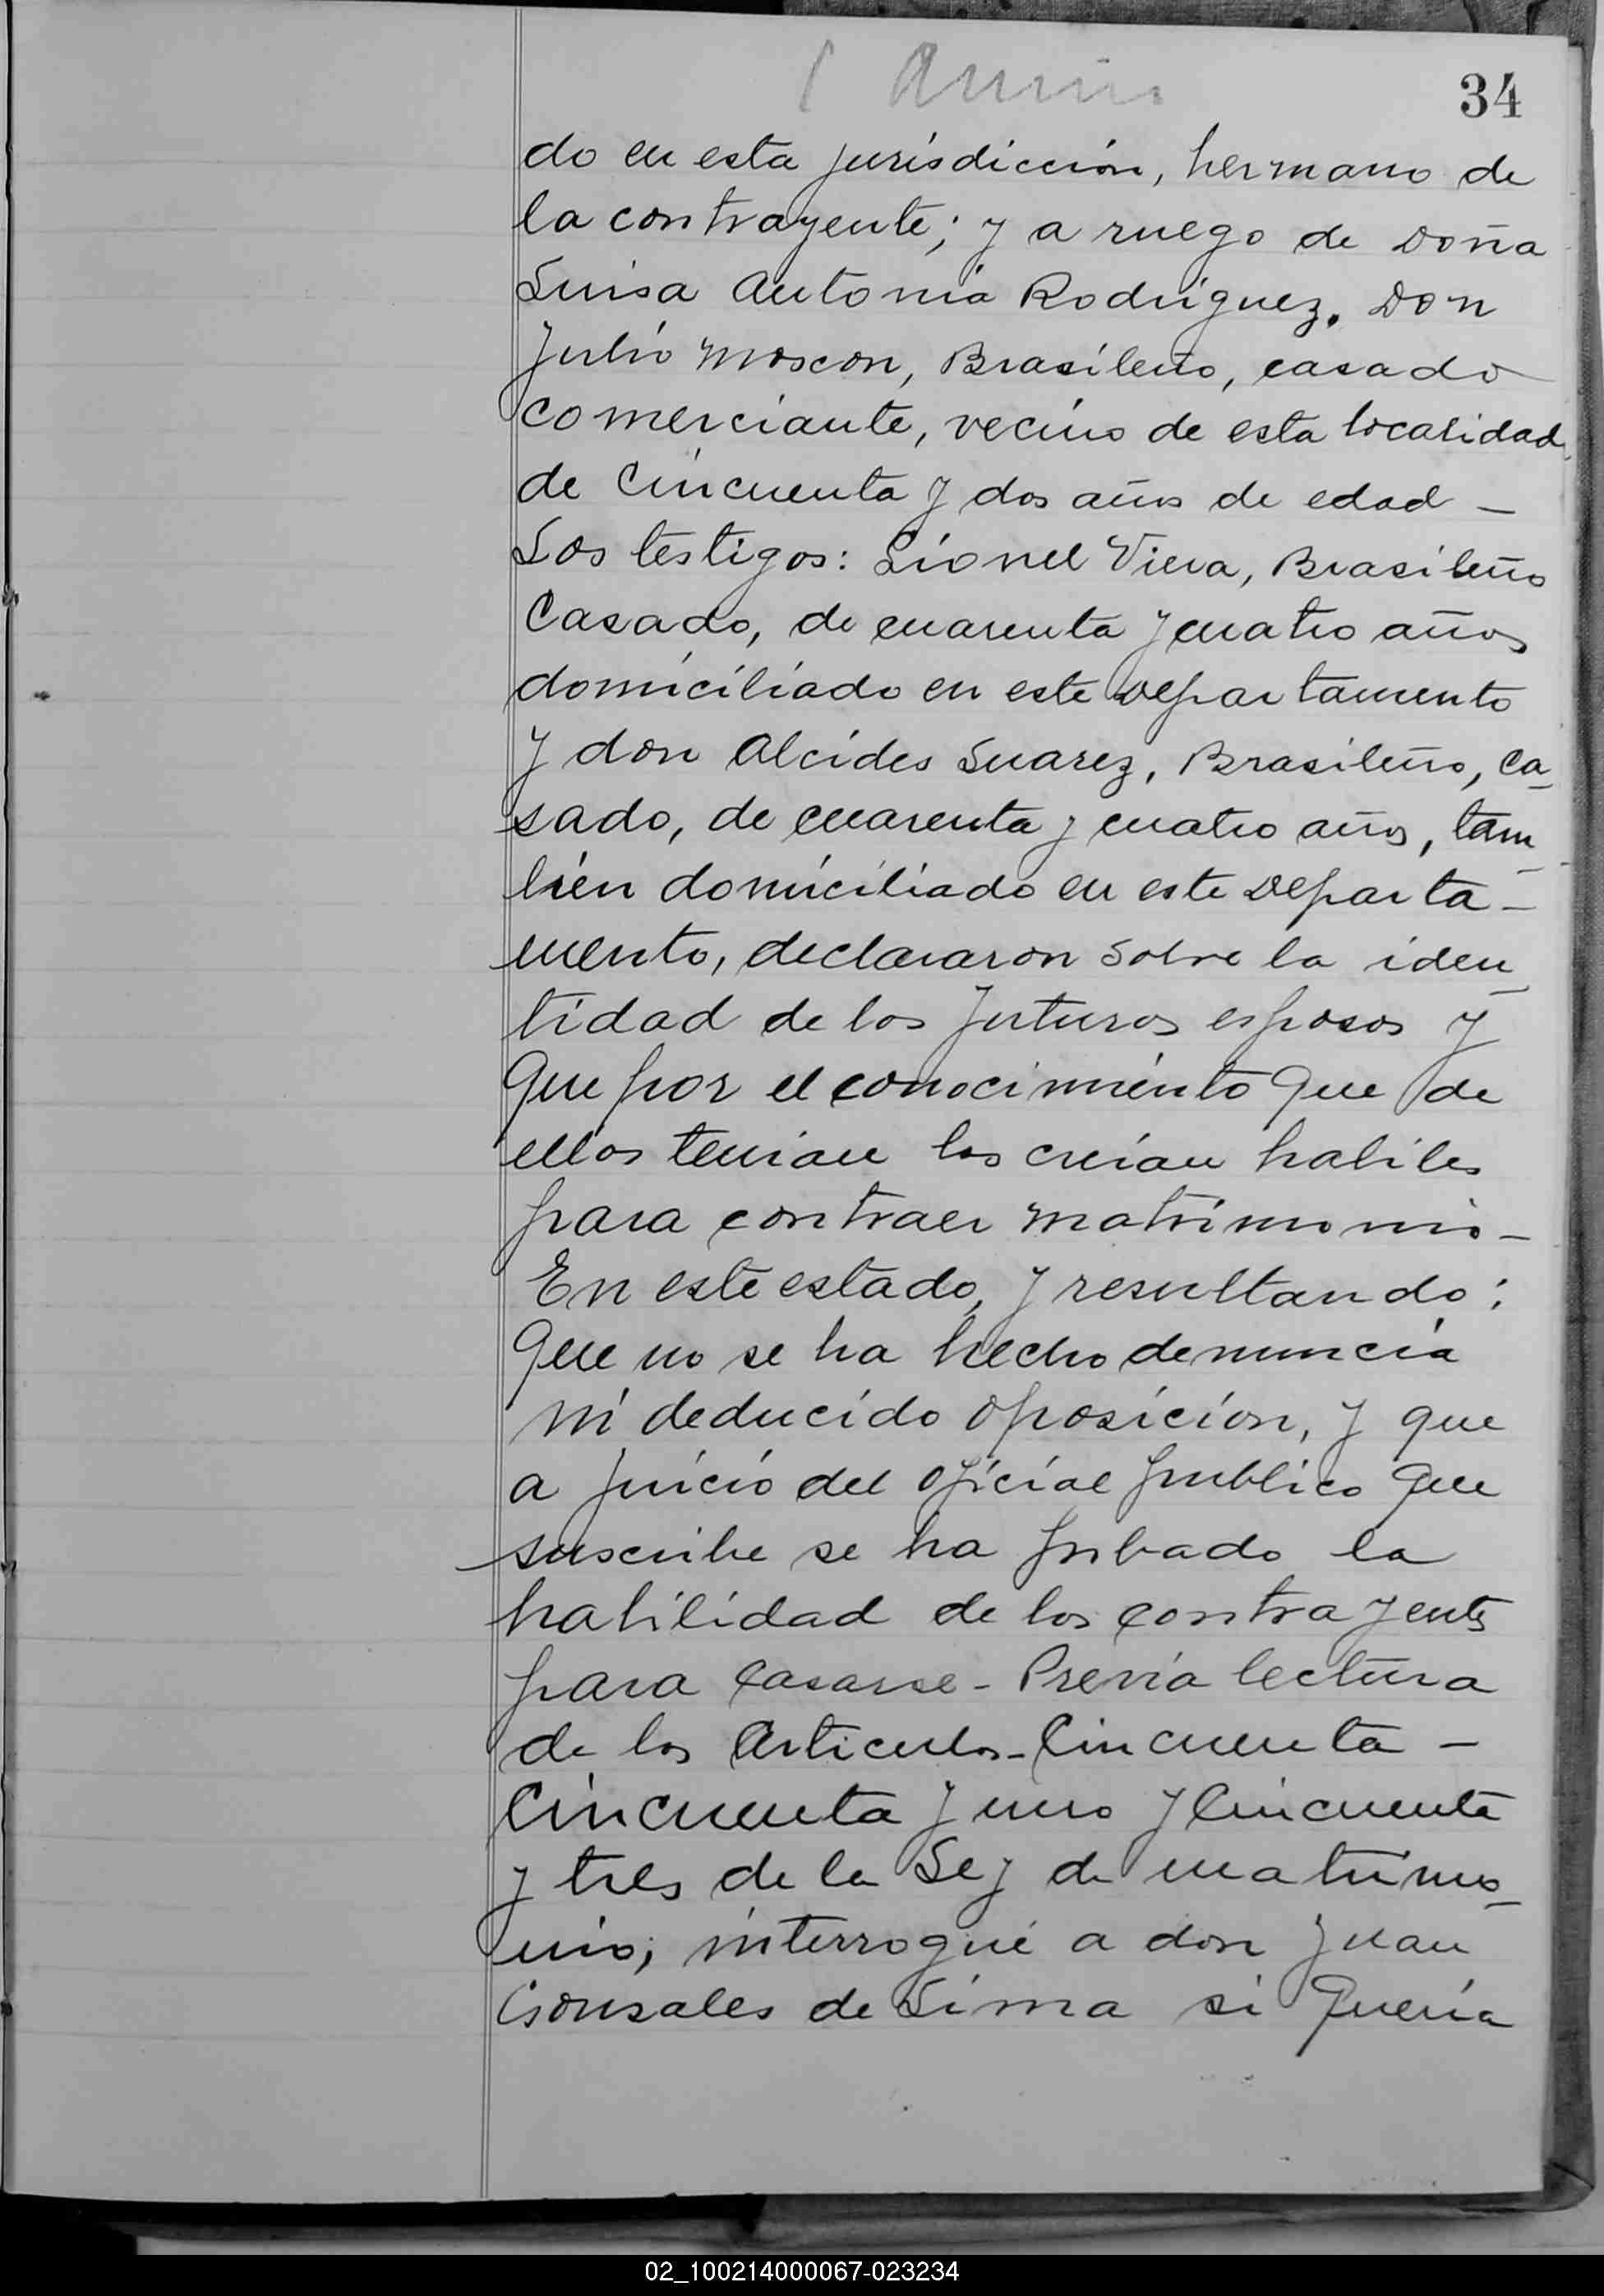 34
do en esta jurisdicción, hermano de
la contrayente; y a ruego de Doña
Luisa Antonia Rodriguez. Don
Julio Moscon, Brasileño, casado
comerciante, vecino de esta localidad,
de Cincuenta y dos años de edad —
Los testigos: Lionel Viera, Brasileño
Casado, de cuarenta y cuatro años
domiciliado en este Departamento
y don Alcides Suarez, Brasileño, Ca-
sado, de cuarenta y cuatro años, tam-
bién domiciliado en este Departa-
mento, declararon sobre la iden-
tidad de los futuros esposos y
Que por el conocimiento Que de
ellos tenian los creian habiles
para contraer matrimonio —
En este estado, y resultando:
Que no se ha hecho denuncia
ni deducido oposicion, y que
a juicio del oficial publico Que
suscribe se ha probado la
habilidad de los contrayentes
para Casarse - Previa lectura
de los Articulos - Cincuenta —
Cincuenta y uno y Cincuenta
y tres de la Ley de matrimo-
nio; interrogué a don Juan
Gonsales de Lima si Queria
02_100214000067-023234